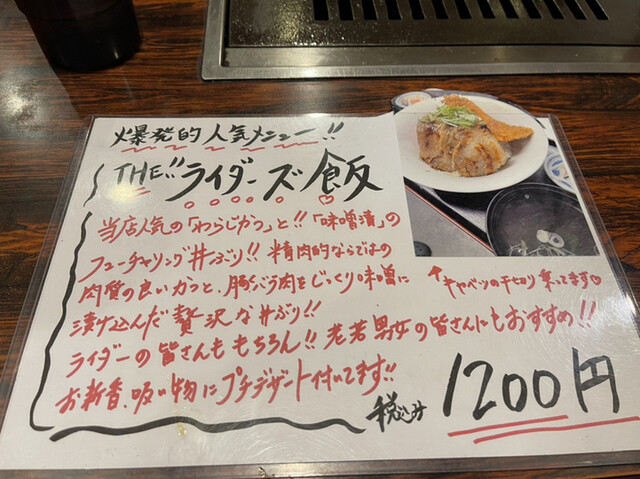 爆発的人気メニュー!!
THE!!ライダーズ飯
当店人気の「わらじかつ」と!!「味噌漬」の
フューチャリング丼ぶり!! 精肉的ならではの
肉質の良いカツと、豚バラ肉をじっくり味噌に
漬け込んだ贅沢な丼ぶり!!
ライダーの皆さんももちろん!! 老若男女の皆さんにもおすすめ!!
お新香、吸い物にプチデザート付いてます!!
↑キャベツの千切り乗ってます♡
税込み 1200円